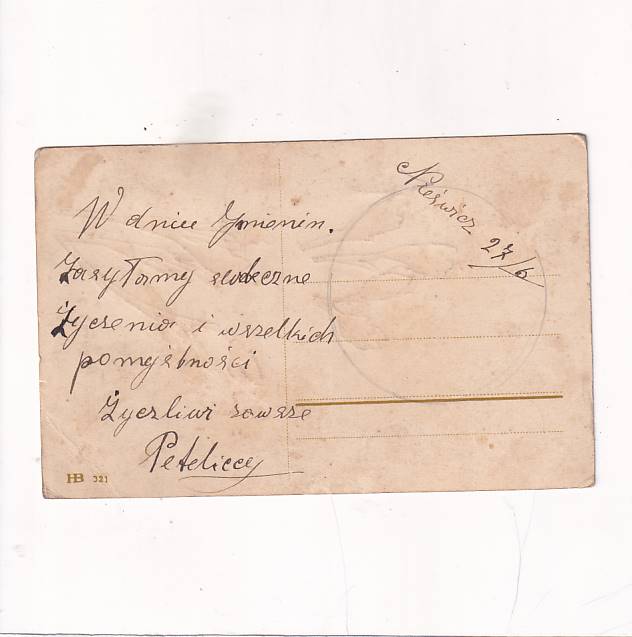 Nieświcz 27/6
W dniu Imienin.
Zasyłamy serdeczne
Życzenia i wszelkich
pomyślności
Życzliwi zawsze
Peteliccy
HB 321